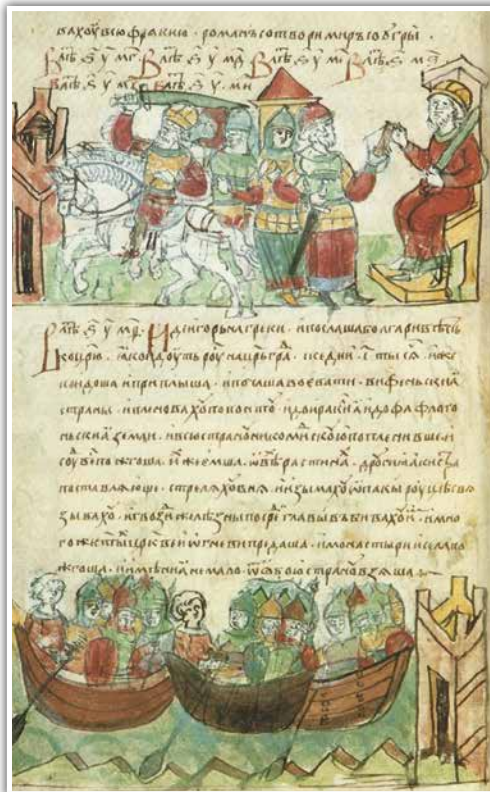 вахоу всю фракию · романъ сотвори миръ со оугры ·
В лѣт ҂ѕ у мг · В лѣт ҂ѕ у мд · В лѣт ҂ѕ у ме · В лѣт ҂ѕ у мѕ
В лѣт ҂ѕ у мз · В лѣт ҂ѕ · у · ми
В лѣт ҂ѕ у мѳ · Иде игорь на греки · и послаша болгари вѣсть
ко црю · яко идоуть роу на црьгра · скедии · ї · тысѧ · иже
и приплыша · и почаша воевати · вифеньскиа
страны · и пленовахоу по понтоу · и до ираклиа и до фафлого
ньскиа земли · и всю страноу
соу весь пожгоша · ихже емша · ѡвѣ растина · дроугиа
поставляюще · стреляхоу в ня · изымахоу ѡпакы роуцѣ свя
зывахоу · и гвозди желѣзны посрѣ главы въбивахоу · мно
го же стых црквеи ѡгневи предаша · и монастыри и села по
жгоша · и имѣниа немало ѿ ѡбою страноу взяша